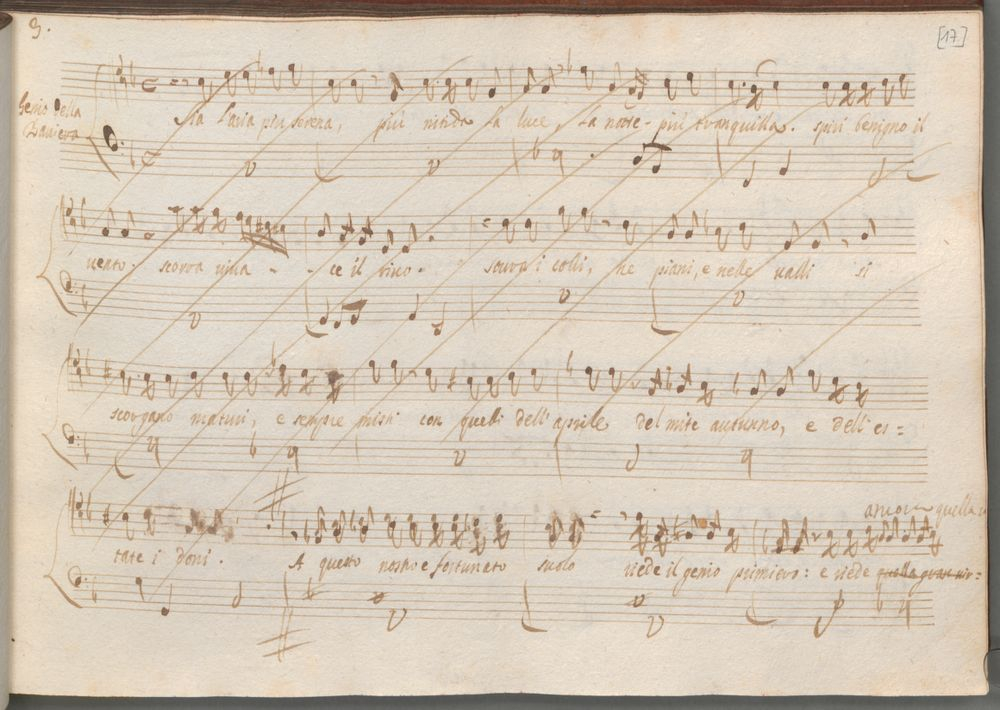 3.
[17]
Genio della
Baviera
Sia l'aria piu serena, più nitida la luce, la notte più tranquilla. spiri benigno il
vento. scorra viva - - ce il rivo. sovra i colli, ne piani, e nelle valli si
scorgano maturi, e sempre misti con quelli dell'aprile del mite autunno, e dell'es=
ancora quella
tate i doni. A questo nostro e fortunato suolo riede il genio primiero: e riede quella gran vir=